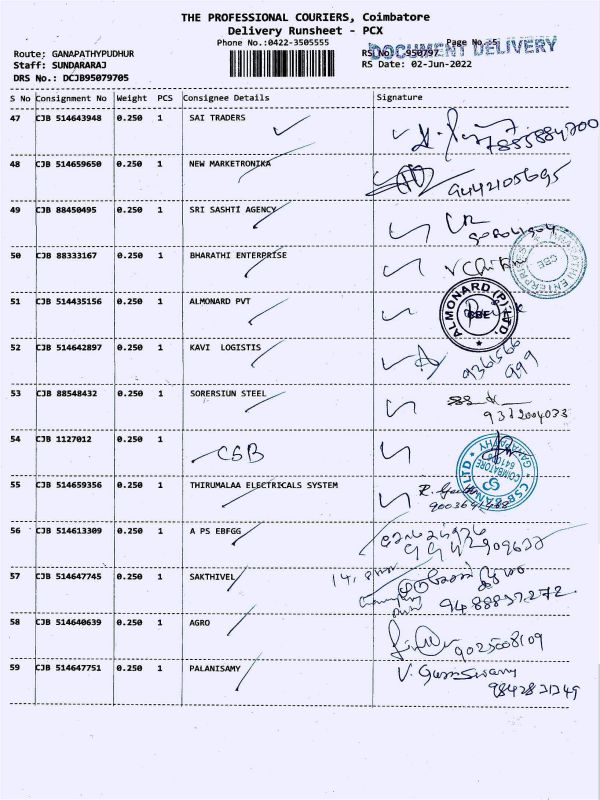 THE PROFESSIONAL COURIERS, Coimbatore
Delivery Runsheet - PCX
Phone No.:0422-3505555 Page No. 5
DOCUMENT DELIVERY
Route: GANAPATHYPUDHUR RS No.: 950797
Staff: SUNDARARAJ RS Date: 02-Jun-2022
DRS No.: DCJB95079705
S No Consignment No Weight PCS Consignee Details Signature
47 CJB 514643948 0.250 1 SAI TRADERS
48 CJB 514659650 0.250 1 NEW MARKETRONIKA 9442105695
49 CJB 88450495 0.250 1 SRI SASHTI AGENCY
50 CJB 88333167 0.250 1 BHARATHI ENTERPRISE
CBE
51 CJB 514435156 0.250 1 ALMONARD PVT
ALMONARD (P) LTD
CBE
52 CJB 514642897 0.250 1 KAVI LOGISTIS
53 CJB 88548432 0.250 1 SORERSIUN STEEL
9312004033
54 CJB 1127012 0.250 1 CSB
CSB BANK LTD
COIMBATORE
GANAPATHY
55 CJB 514659356 0.250 1 THIRUMALAA ELECTRICALS SYSTEM
56 CJB 514613309 0.250 1 A PS EBFGG
57 CJB 514647745 0.250 1 SAKTHIVEL
58 CJB 514640639 0.250 1 AGRO
9025008109
59 CJB 514647751 0.250 1 PALANISAMY
9842831349